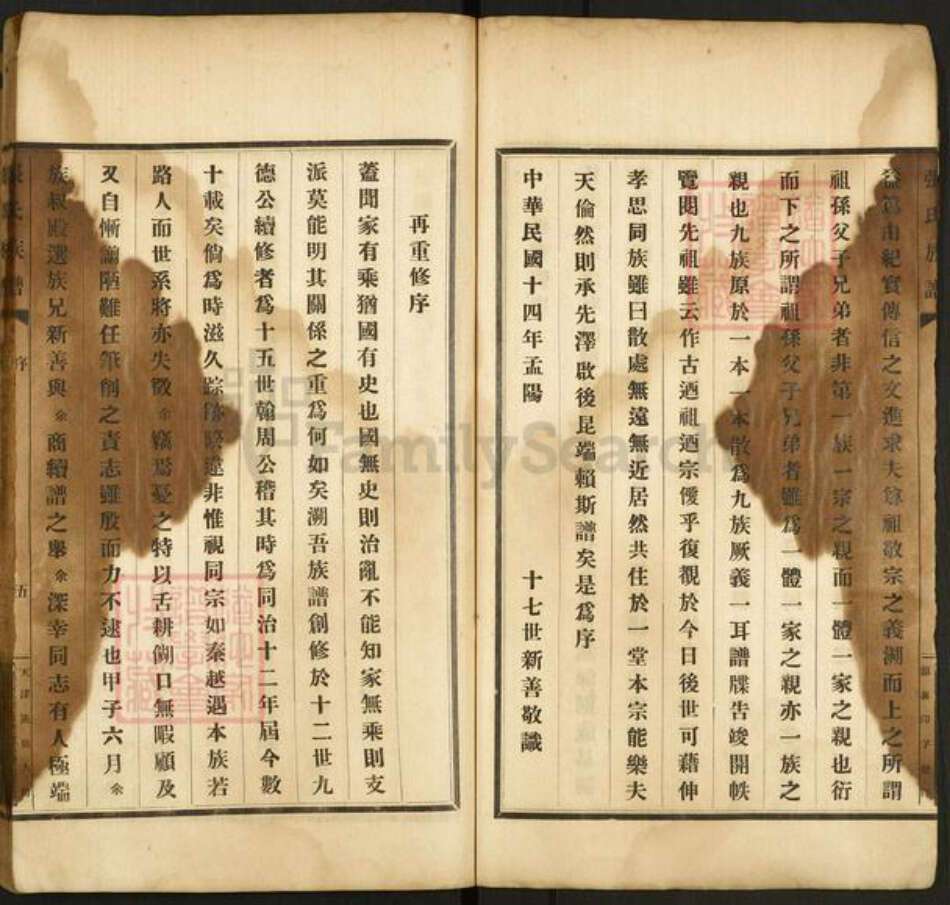 張氏族譜
益篤由紀實傳信之文進求夫尊祖敬宗之義溯而上之所謂
祖孫父子兄弟者非第一族一宗之親而一體一家之親也衍
而下之所謂祖孫父子兄弟者雖爲一體一家之親亦一族之
親也九族原於一本一本散爲九族厥義一耳譜牒告竣開帙
覽閱先祖雖云作古迺祖迺宗僾乎復觀於今日後世可藉伸
孝思同族雖曰散處無遠無近居然共住於一堂本宗能樂夫
天倫然則承先澤啟後昆端賴斯譜矣是爲序
中華民國十四年孟陽 十七世新善敬識
再重修序
蓋聞家有乘猶國有史也國無史則治亂不能知家無乘則支
派莫能明其關係之重爲何如矣溯吾族譜創修於十二世九
德公續修者爲十五世翰周公稽其時爲同治十二年屆今數
十載矣倘爲時滋久踪跡睽違非惟視同宗如秦越遇本族若
路人而世系將亦失徵余竊焉憂之特以舌耕餬口無暇顧及
又自慚謭陋難任筆削之責志雖殷而力不逮也甲子六月余
族叔殿選族兄新善與余商續譜之舉余深幸同志有人極端
張氏族譜 序 五
FamilySearch